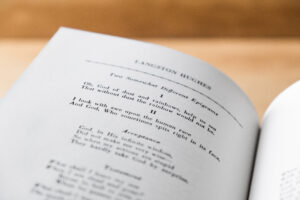 LANGSTON HUGHES
Two Somewhat Different Epigrams
I
Oh, God of dust and rainbows, help us see
That without dust the rainbow would not be.
II
I look with awe upon the human race
And God, Who sometimes spits right in its face.
Acceptance
God, in His infinite wisdom,
Did not make me very wise—
So when my actions are stupid
They hardly take God by surprise.
Testament
What shall I leave